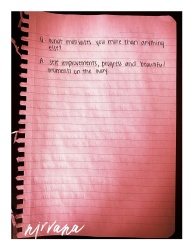 Q - What motivates you more than anything
else?
A self improvements, progess and beautiful
moments on the way.
nirvana